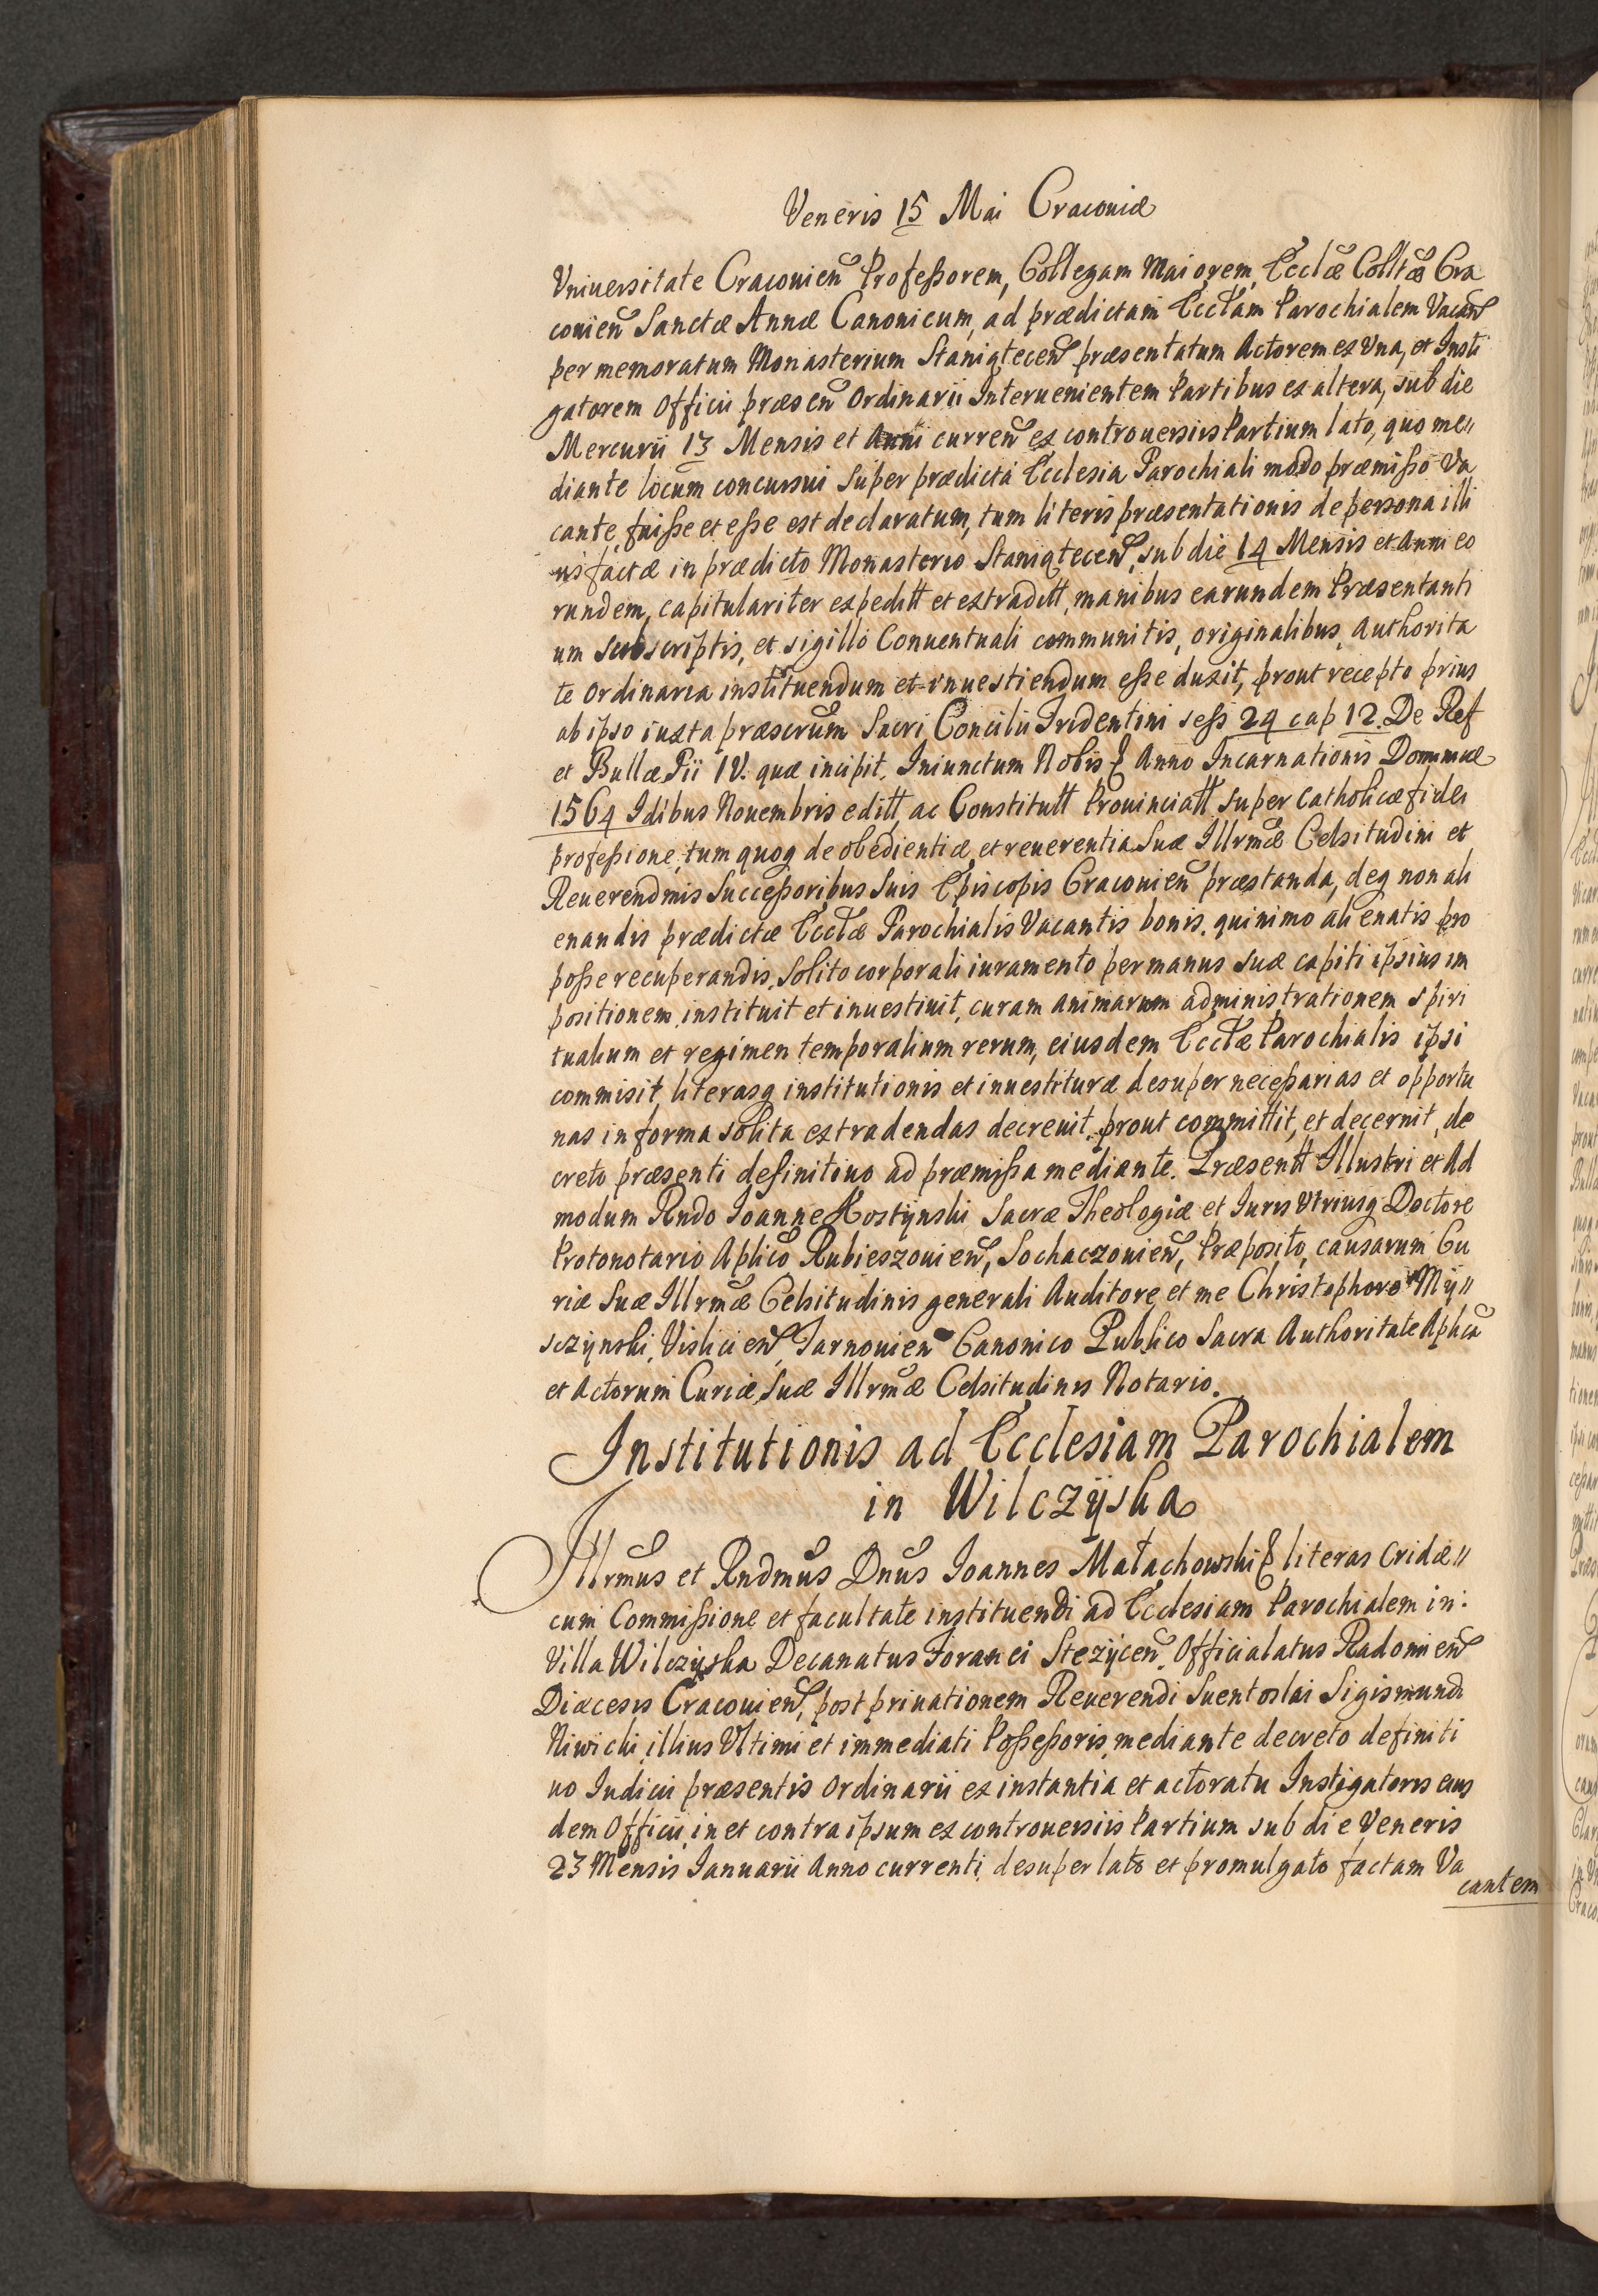 Veneris 15 Mai Cracouiæ
Vniuersitate Cracouien Profeßorem, Collegam Maiorem, Ecclæ Colltæ Cra
couien Sanctæ Annæ Canonicum, ad prædictam Ecclam Parochialem Vacan
per memoratum Monasterium Staniątecen præsentatum Actorem ex Vna, et Insti
gatorem Officii præsen Ordinarii Interuenientem Partibus ex altera, sub die
Mercurii 13 Mensis et Anni curren ex controuersiis Partium lato, quo me〃
diante locum concursui super prædicta Ecclesia Parochiali modo præmißo Va
cante, fuiße et eße est declaratum, tum literis præsentationis de persona illi
us factæ in prædicto Monasterio Staniątecen, sub die 14 Mensis et Anni eo
rundem, capitulariter expeditt et extraditt, manibus earundem Præsentanti
um subscriptis, et sigillo Conuentuali communitis, originalibus, Authorita
te Ordinaria instituendum et inuestiendum eße duxit, prout recepto prius
ab ipso iuxta præscrum Sacri Concilii Tridentini seß 24 cap 12. De Ref
et Bullæ Pii IV. quæ incipit, Iniunctum Nobis & Anno Incarnationis Dominicæ
1564 Idibus Nouembris editt, ac Constitutt Prouinciatt super Catholicæ fidei
profeßione, tum quoq de obedientia et reuerentia Suæ Illrmæ Celsitudini et
Reuerendmis Succeßoribus Suis Episcopis Cracouien præstanda, deq non ali
enandis prædictæ Ecclæ Parochialis Vacantis bonis, quinimo alienatis pro
poße recuperandis, solito corporali iuramento per manus suæ capiti ipsius im
positionem, instituit et inuestiuit, curam animarum administrationem spiri
tualium et regimen temporalium rerum, eiusdem Ecclæ Parochialis ipsi
commisit, literasq institutionis et inuestituræ desuper neceßarias et opportu
nas in forma solita extradendas decreuit, prout committit, et decernit, de
creto præsenti definitiuo ad præmißa mediante. Præsentt Illustri et Ad
modum Rndo Ioanne Hostÿnski Sacræ Theologiæ et Iuris Vtriusq Doctore
Protonotario Aplico Rubieszouien, Sochaczouien, Præposito, causarum Cu
riæ Suæ Illrmæ Celsitudinis generali Auditore, et me Christophoro Mÿ〃
sczÿnski, Vislicien, Tarnouien Canonico Publico Sacra Authoritate Aplica
et Actorum Curiæ Suæ Illrmæ Celsitudinis Notario.
Institutionis ad Ecclesiam Parochialem
in Wilczÿska
Illrmus et Rndmus Dnus Ioannes Małachowski & literas Cridæ〃
cum Commißione et facultate instituendi ad Ecclesiam Parochialem in
Villa Wilczÿska Decanatus Foranei Stezÿcen, Officialatus Radomien
Diæcesis Cracouien, post priuationem Reuerendi Suentoslai Sigismundi
Niwicki, illius Vltimi et immediati Poßeßoris, mediante decreto definiti
uo Iudicii præsentis Ordinarii ex instantia et actoratu Instigatoris eius
dem Officii, in et contra ipsum ex controuersiis Partium sub die Veneris
23 Mensis Ianuarii Anno currenti, desuper lato et promulgato factam Va
cantem